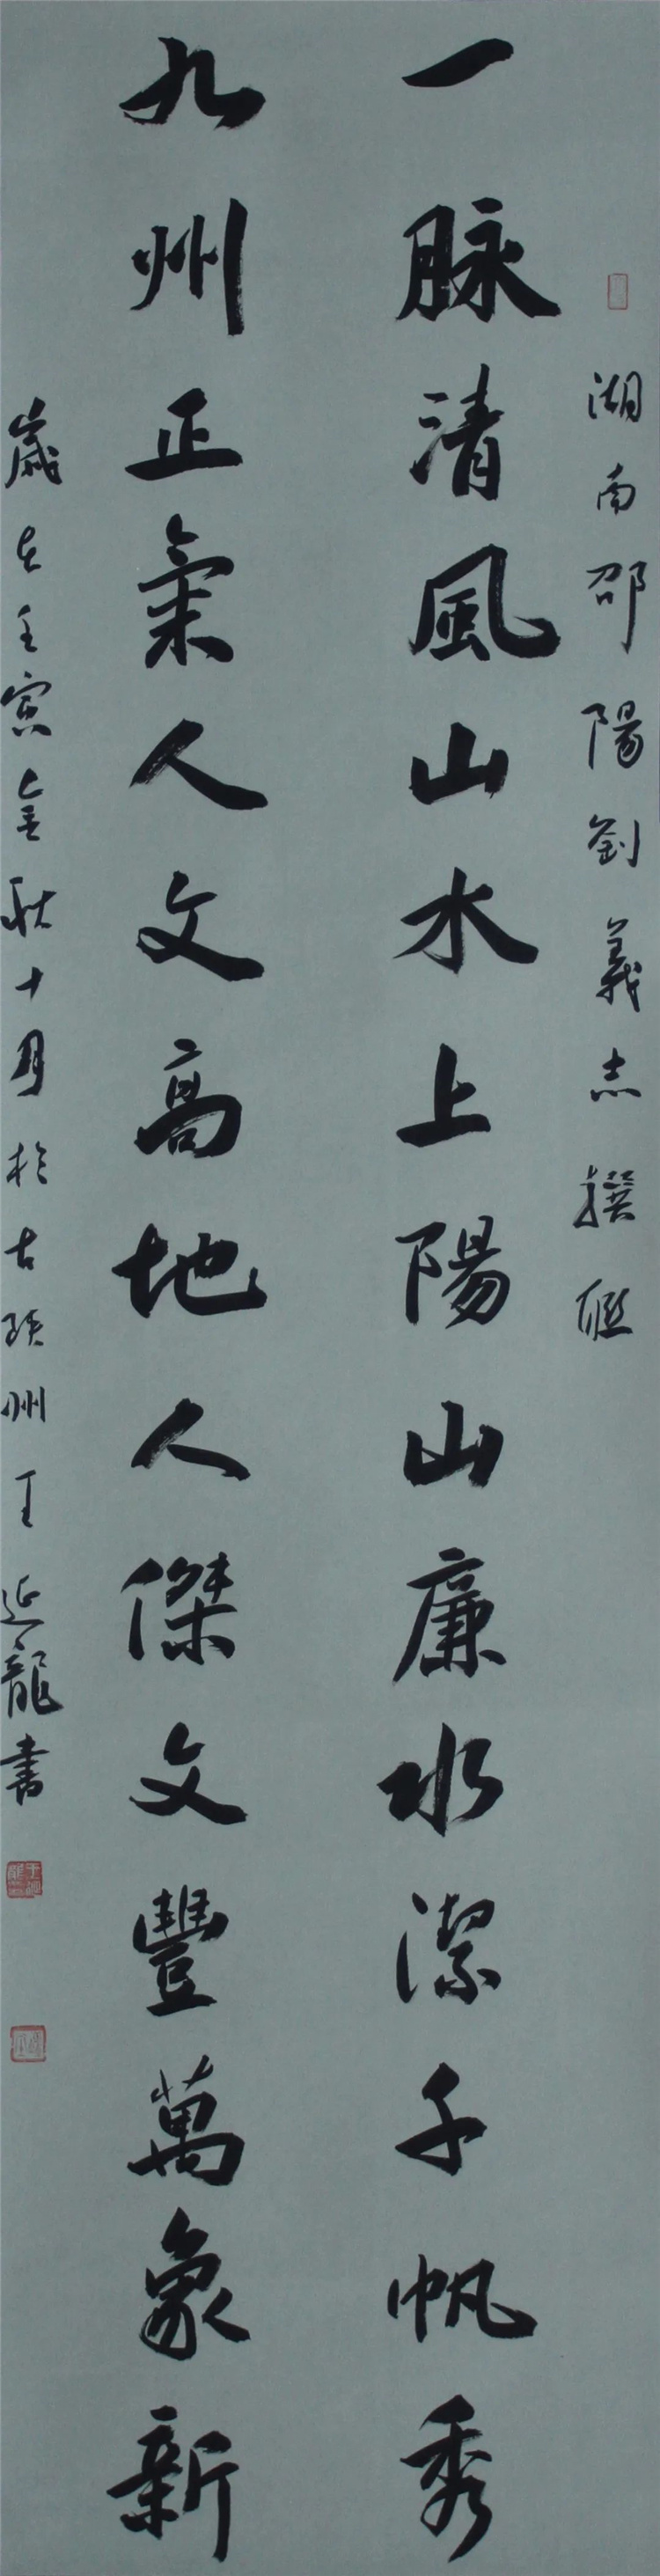 湖南邵陽劉義志撰聯
一脉清風山水上陽山廉水潔千帆秀
九州正氣人文高地人傑文豐萬象新
歲在壬寅金秋十月於古瑛州王延龍書